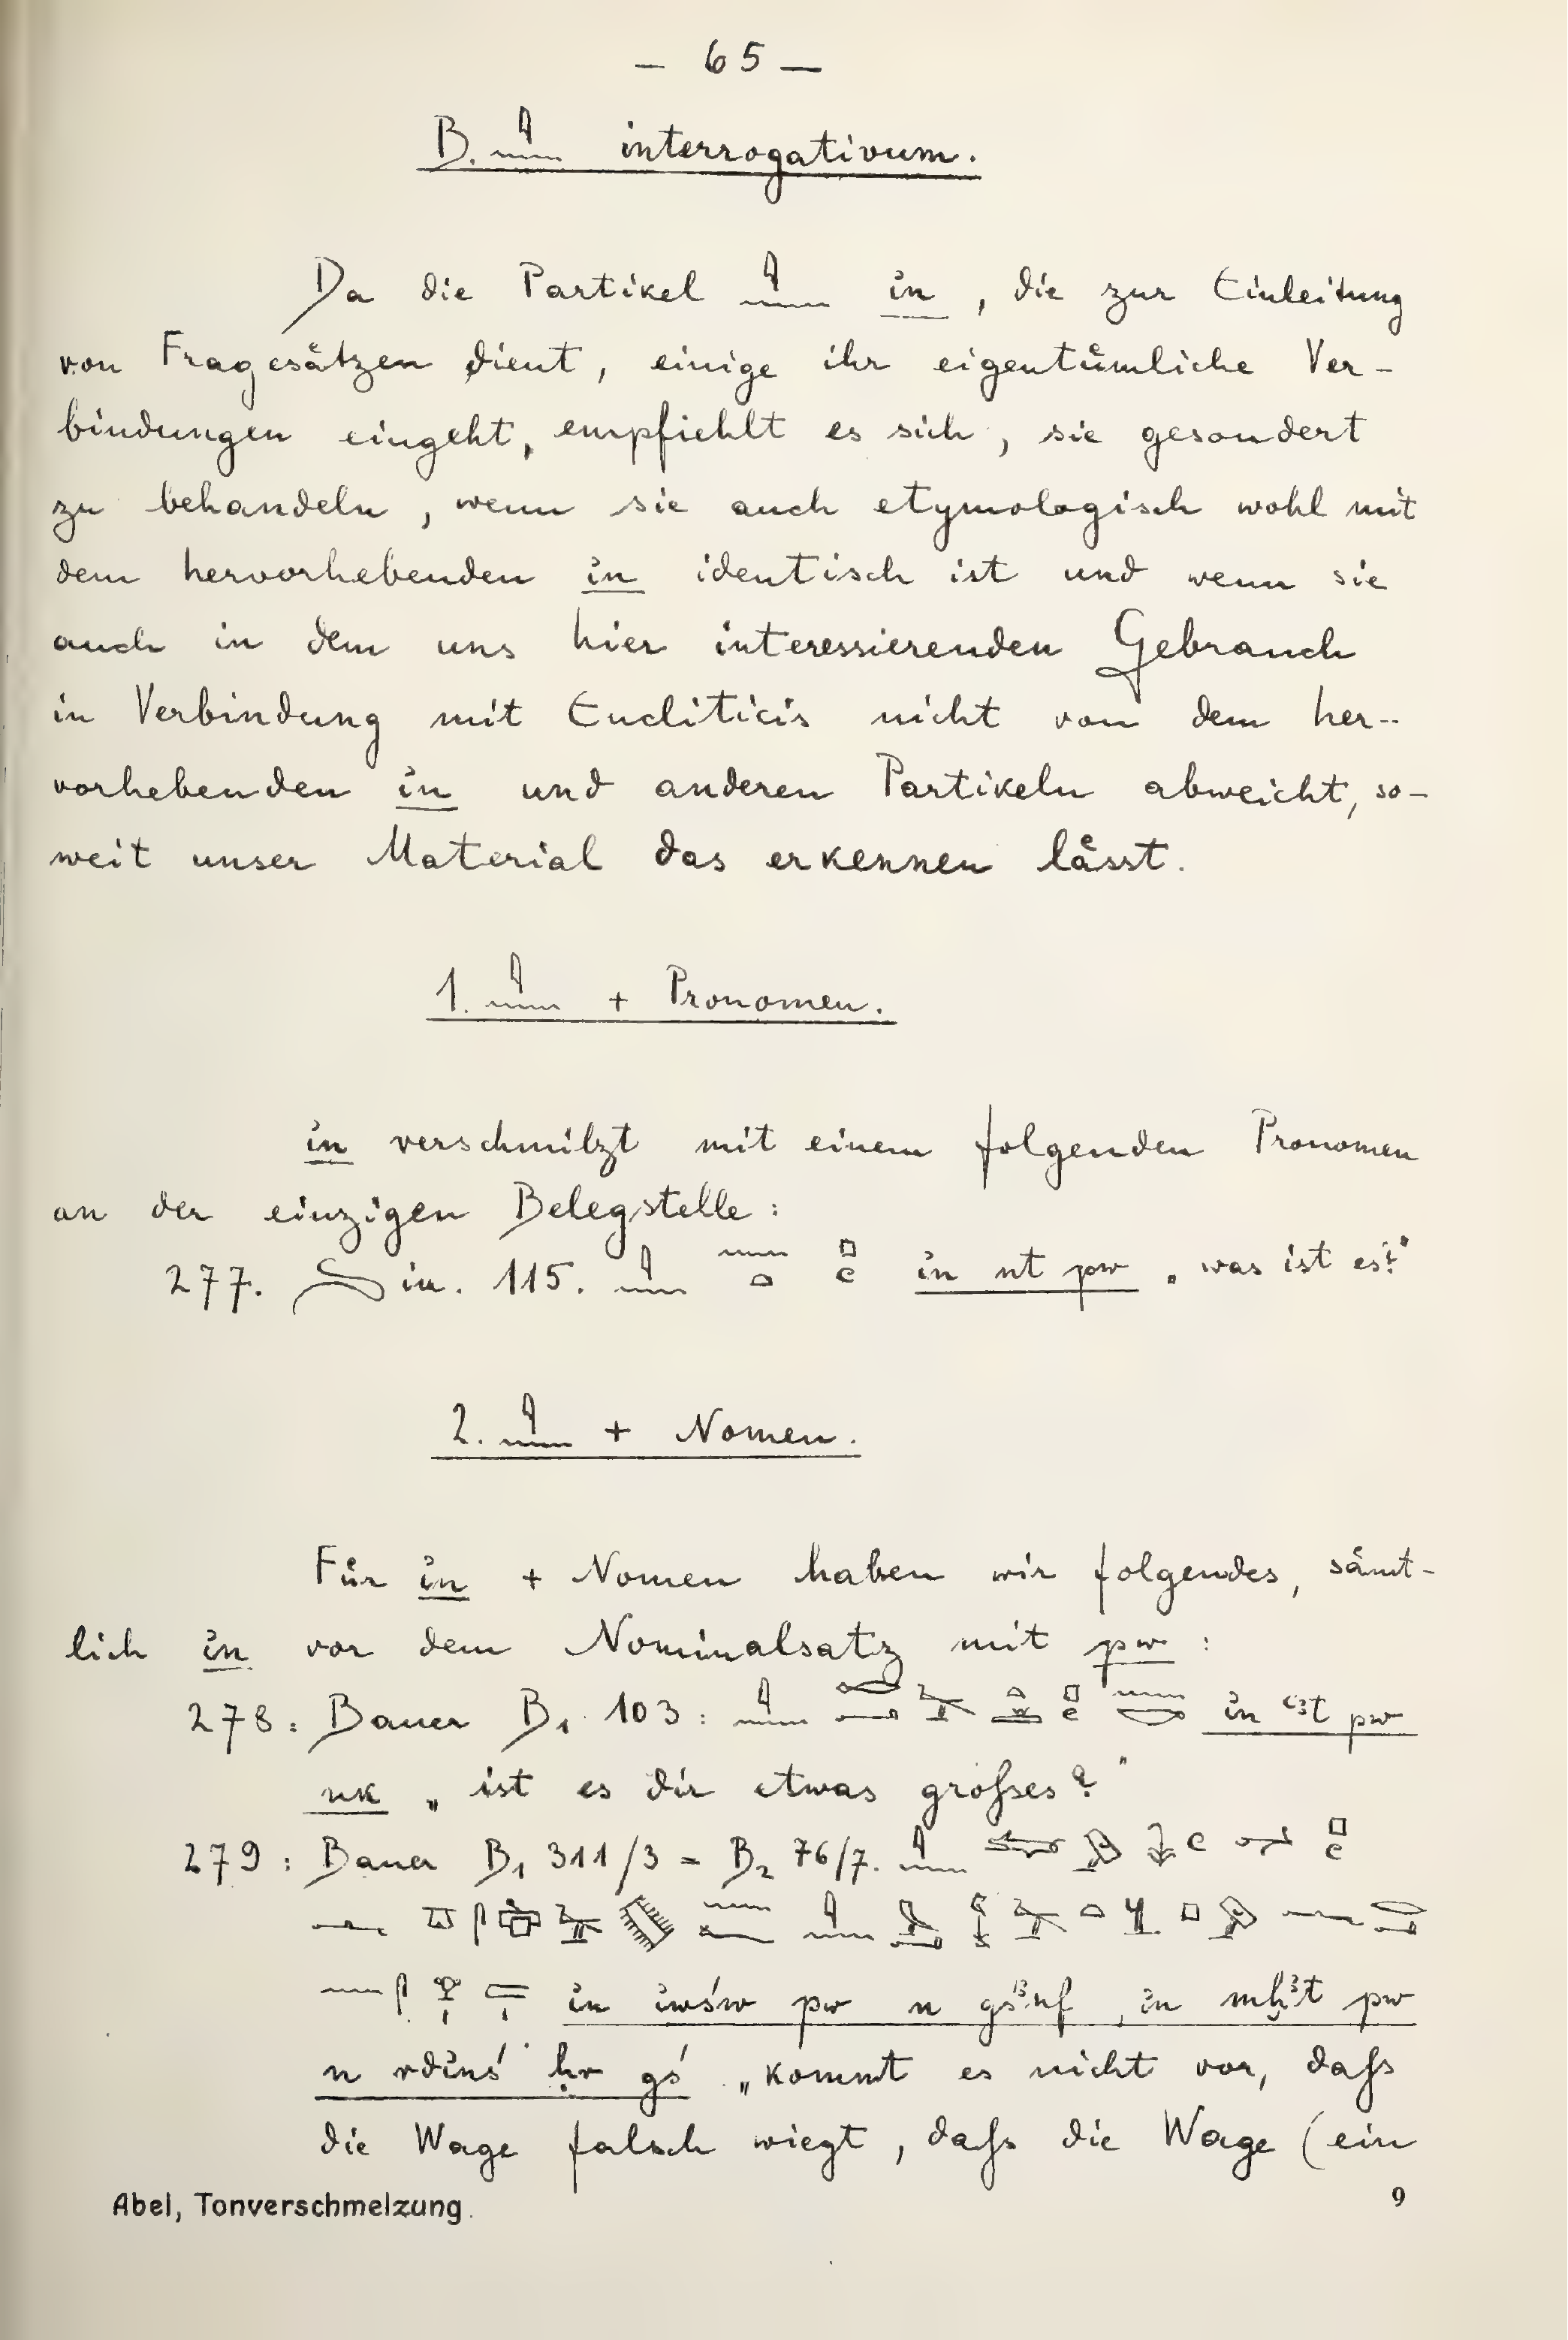 — 65 —
B. 𓇋𓈖 interrogativum.
Da die Partikel 𓇋𓈖 in, die zur Einleitung
von Fragesätzen dient, einige ihr eigentümliche Ver-
bindungen eingeht, empfiehlt es sich, sie gesondert
zu behandeln, wenn sie auch etymologisch wohl mit
dem hervorhebenden in identisch ist und wenn sie
auch in dem uns hier interessierenden Gebrauch
in Verbindung mit Encliticis nicht von dem her-
vorhebenden in und anderen Partikeln abweicht, so-
weit unser Material das erkennen lässt.
1. 𓇋𓈖 + Pronomen.
in verschmilzt mit einem folgenden Pronomen
an der einzigen Belegstelle:
277. Sin. 115. 𓇋𓈖 𓈖𓏏 𓊪𓏲 in nt pw „was ist es?"
2. 𓇋𓈖 + Nomen.
Für in + Nomen haben wir folgendes, sämt-
lich in vor dem Nominalsatz mit pw:
278: Bauer B₁ 103: 𓇋𓈖 𓊪𓏲 𓈖𓎡 in ꜥꜣt pw
nk „ist es dir etwas großes?"
279: Bauer B₁ 311/3 = B₂ 76/7. 𓇋𓈖 𓊪𓏲
in iwśw pw n gśꜣnf, in mḫꜣt pw
n rdinś ḥr gś „kommt es nicht vor, daß
die Wage falsch wiegt, daß die Wage (ein
Abel, Tonverschmelzung. 9